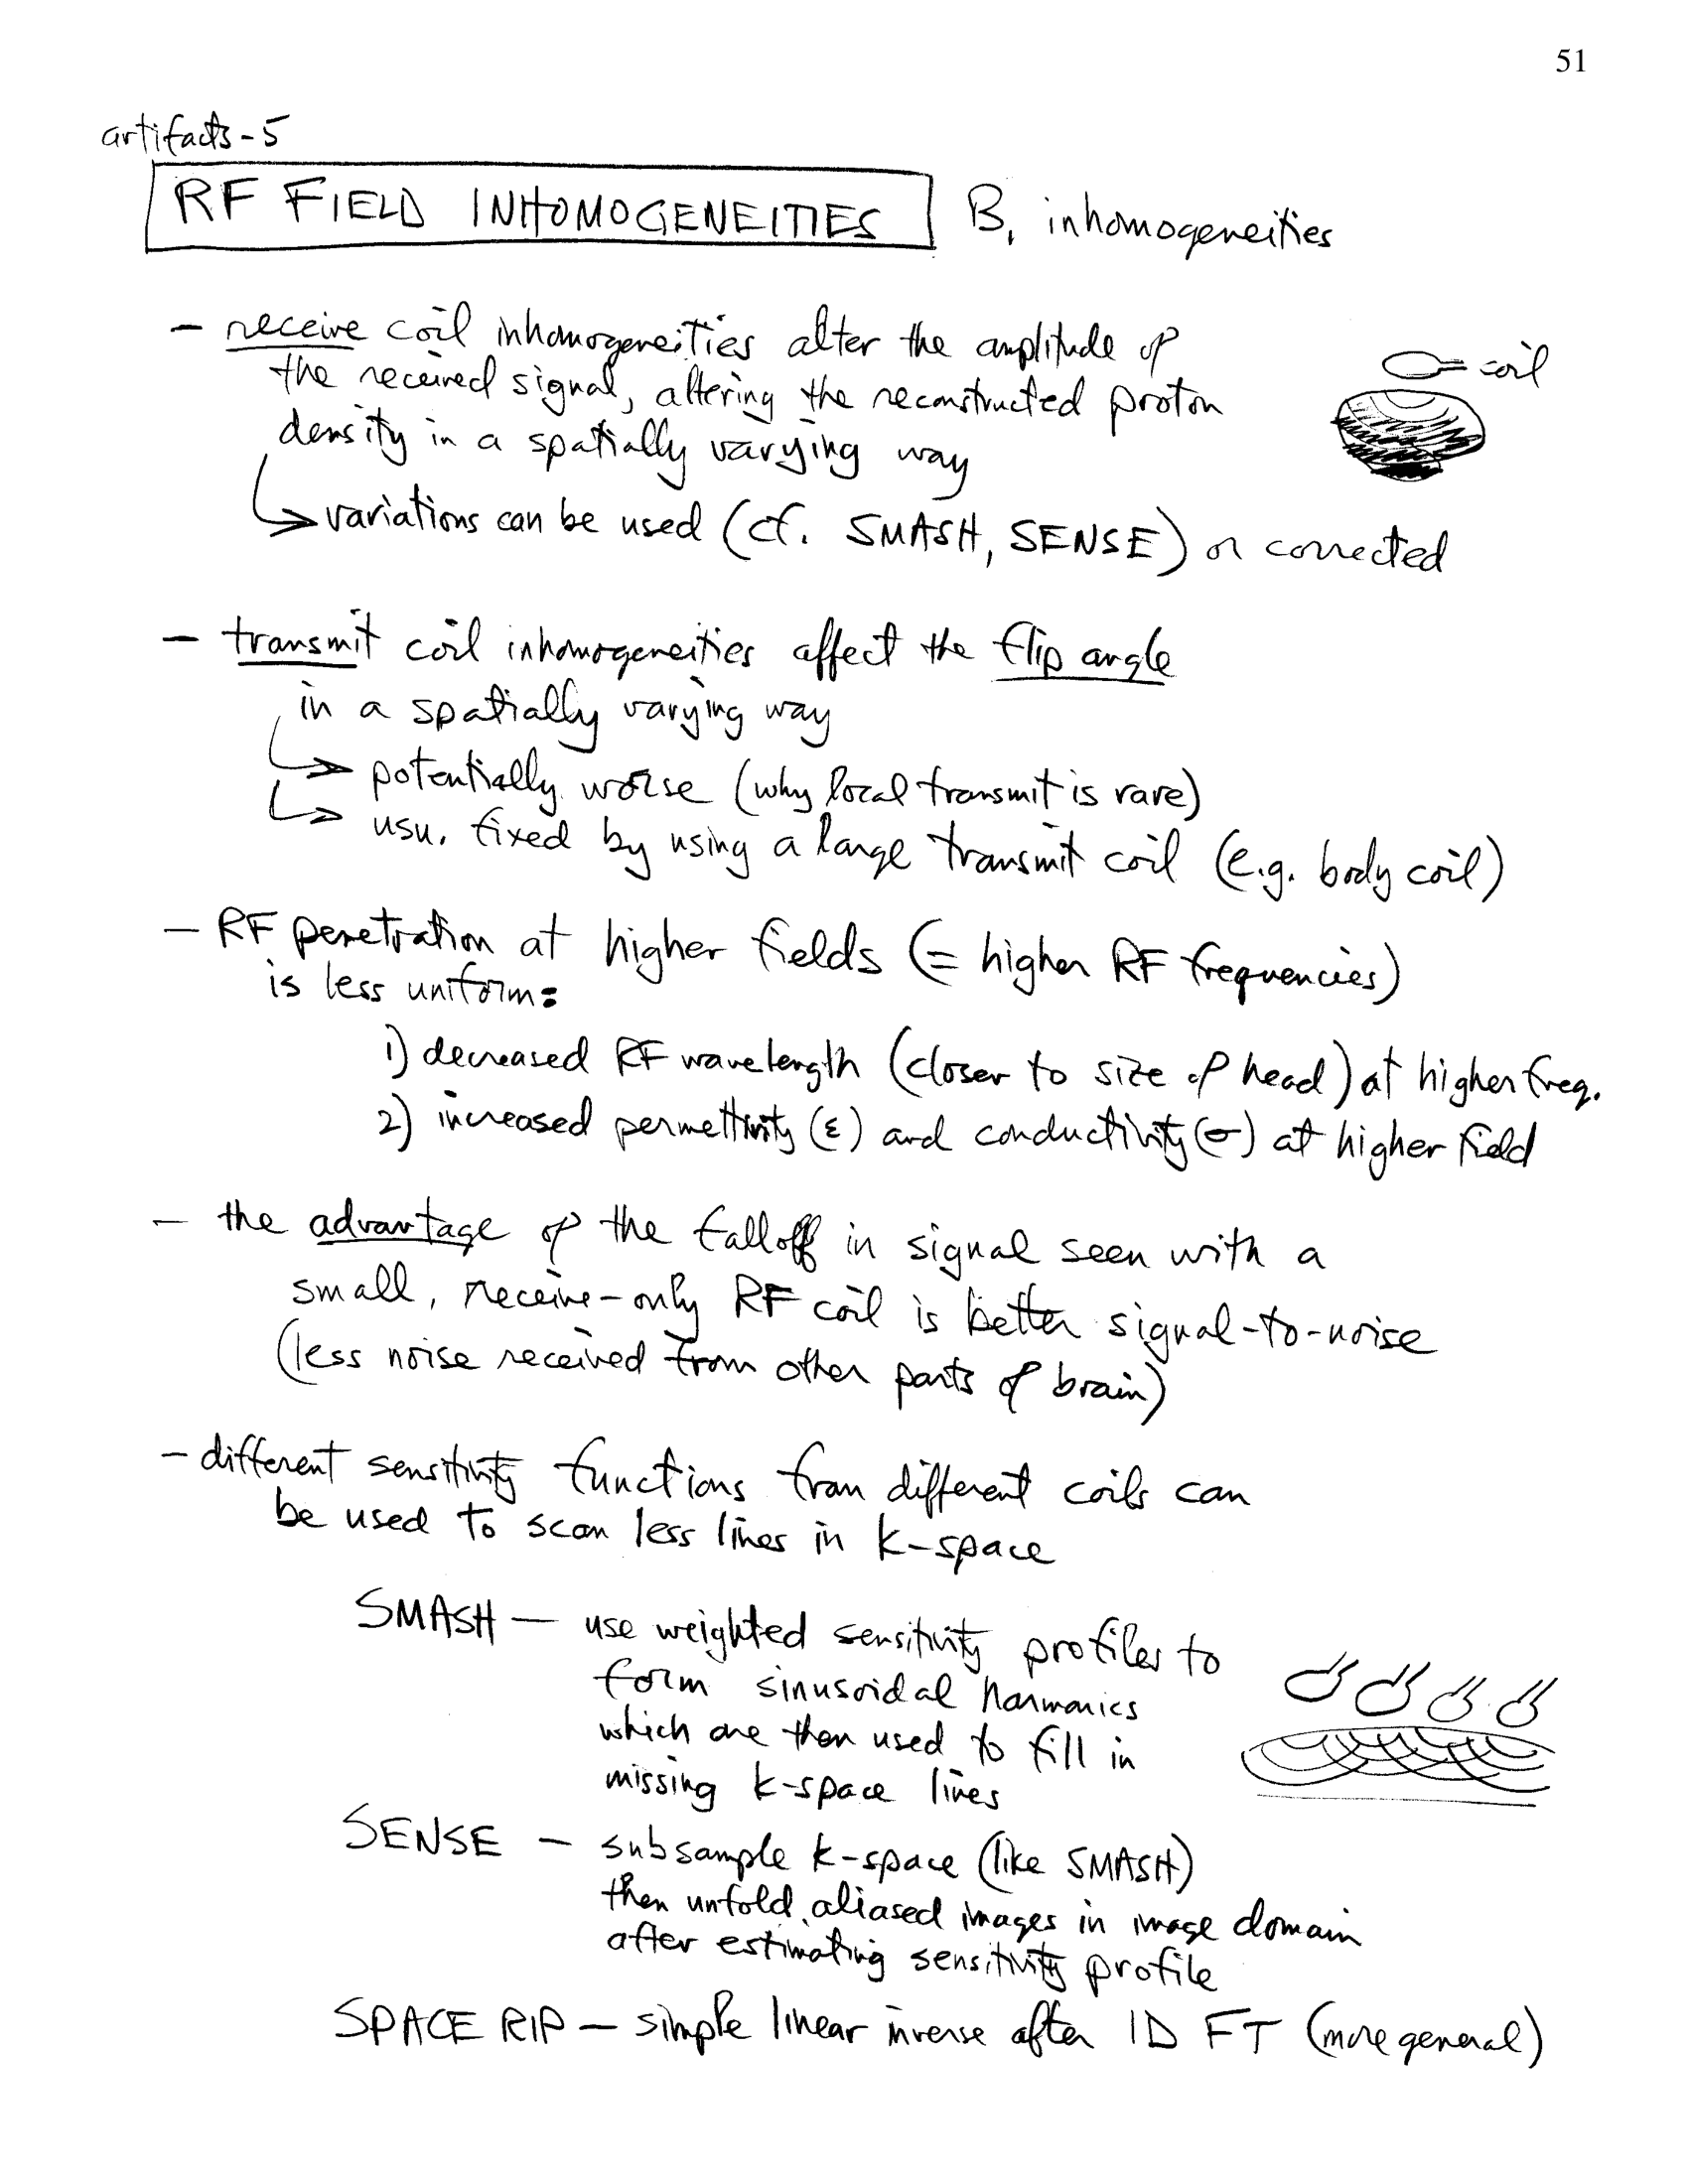 51
artifacts-5
RF FIELD INHOMOGENEITIES B₁ inhomogeneities
- receive coil inhomogeneities alter the amplitude of
the received signal, altering the reconstructed proton
density in a spatially varying way
coil
→ variations can be used (cf. SMASH, SENSE) or corrected
- transmit coil inhomogeneities affect the flip angle
in a spatially varying way
→ potentially worse (why local transmit is rare)
→ usu. fixed by using a large transmit coil (e.g. body coil)
- RF penetration at higher fields (= higher RF frequencies)
is less uniform:
1) decreased RF wavelength (closer to size of head) at higher freq.
2) increased permettivity (ε) and conductivity (σ) at higher field
- the advantage of the falloff in signal seen with a
small, receive-only RF coil is better signal-to-noise
(less noise received from other parts of brain)
- different sensitivity functions from different coils can
be used to scan less lines in k-space
SMASH - use weighted sensitivity profiles to
form sinusoidal harmonics
which are then used to fill in
missing k-space lines
SENSE - subsample k-space (like SMASH)
then unfold aliased images in image domain
after estimating sensitivity profile
SPACE RIP - simple linear inverse after 1D FT (more general)